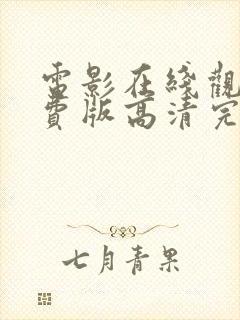 雷影在綫觀
費版高清完
七月青果